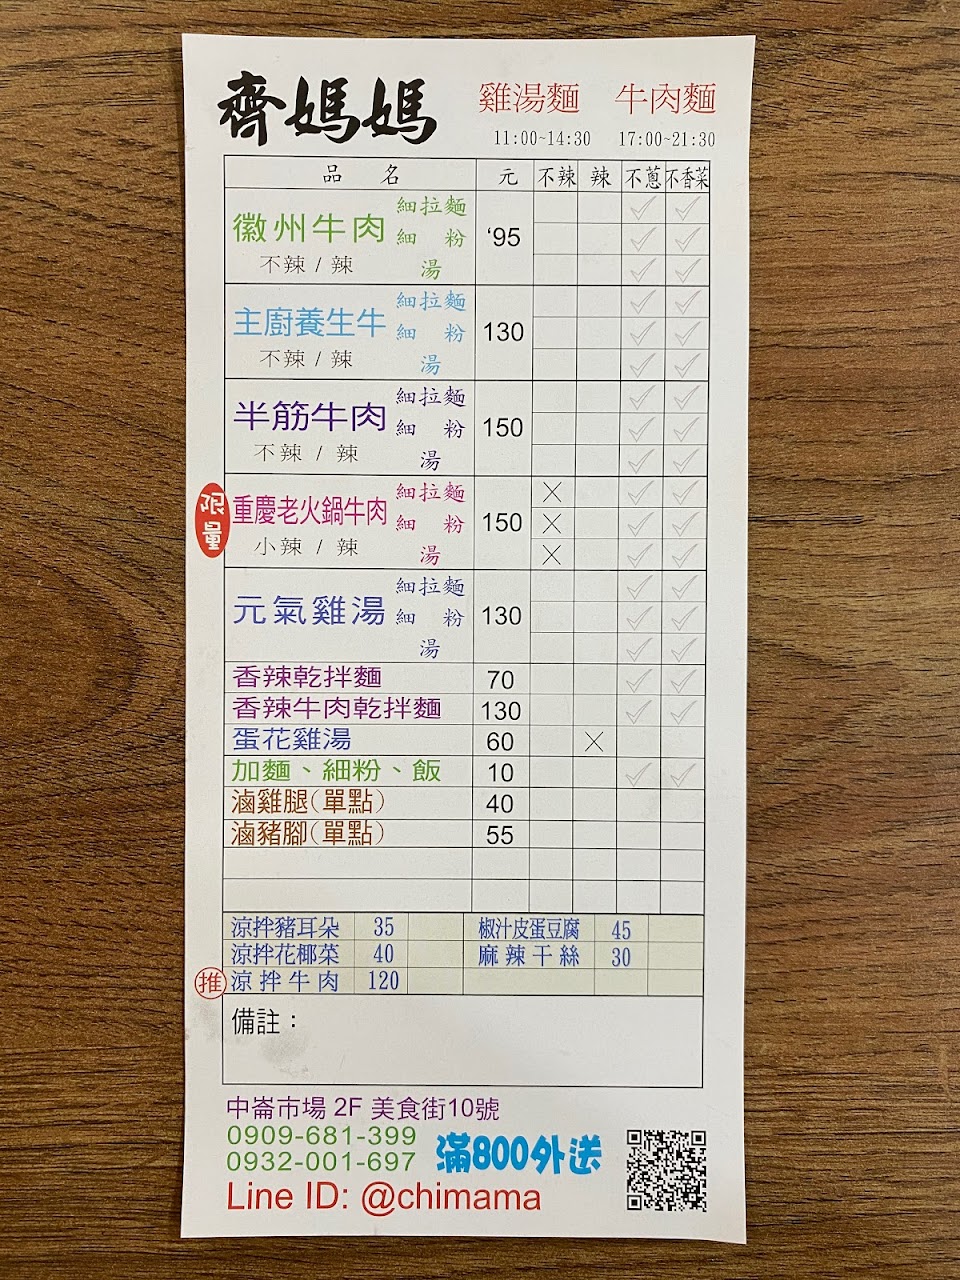 齊媽媽 雞湯麵 牛肉麵
11:00~14:30 17:00~21:30
品 名 元 不辣 辣 不蔥 不香菜
徽州牛肉 細拉麵
細 粉 '95
不辣 / 辣 湯
主廚養生牛 細拉麵
細 粉 130
不辣 / 辣 湯
半筋牛肉 細拉麵
細 粉 150
不辣 / 辣 湯
限量 重慶老火鍋牛肉 細拉麵
細 粉 150
小辣 / 辣 湯
元氣雞湯 細拉麵
細 粉 130
湯
香辣乾拌麵 70
香辣牛肉乾拌麵 130
蛋花雞湯 60
加麵、細粉、飯 10
滷雞腿(單點) 40
滷豬腳(單點) 55
涼拌豬耳朵 35 椒汁皮蛋豆腐 45
涼拌花椰菜 40 麻辣干絲 30
推 涼拌牛肉 120
備註：
中崙市場 2F 美食街10號
0909-681-399
0932-001-697 滿800外送
Line ID: @chimama